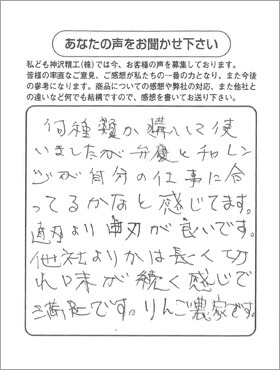 あなたの声をお聞かせ下さい
私ども神沢精工(株)では今、お客様の声を募集しております。
皆様の率直なご意見、ご感想が私たちの一番の力となり、また今後
の参考になります。商品についての感想や弊社の対応、また他社と
の違いなど何でも結構ですので、感想を書いてお送り下さい。
何種類か購入して使
いましたが弁慶とチャレン
ジが自分の仕事に合
ってるかなと感じてます。
直刃より曲刃が良いです。
他社よりかは長く切
れ味が続く感じで
満足です。りんご農家です。